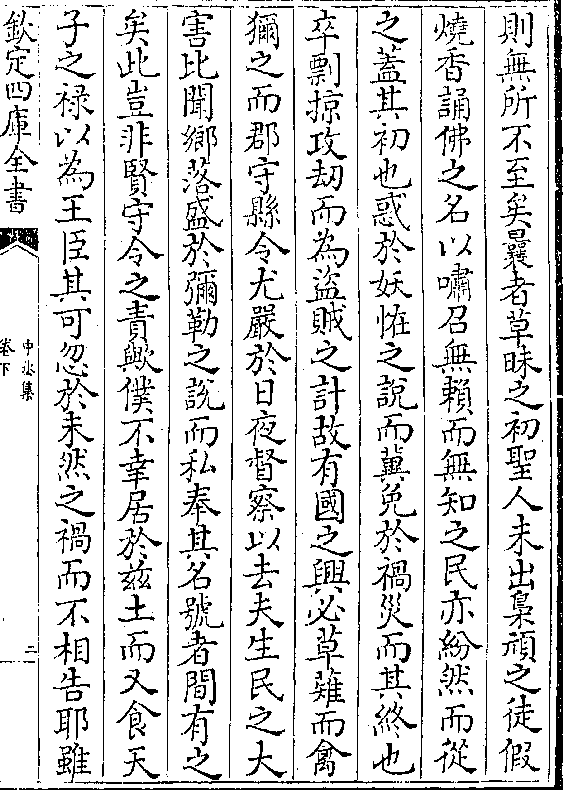 則無所不至矣曩者草昧之初聖人未出梟頑之徒假
燒香誦佛之名以嘯召無賴而無知之民亦紛然而從
之蓋其初也惑於妖恠之說而冀免於禍災而其終也
卒剽掠攻刼而為盜賊之計故有國之興必草薙而禽
獮之而郡守縣令尤嚴於日夜督察以去夫生民之大
害比聞鄉落盛於彌勒之說而私奉其名號者間有之
矣此豈非賢守令之責歟僕不幸居於兹土而又食天
子之禄以為王臣其可忽於未然之禍而不相告耶雖
欽定四庫全書
卷下
二